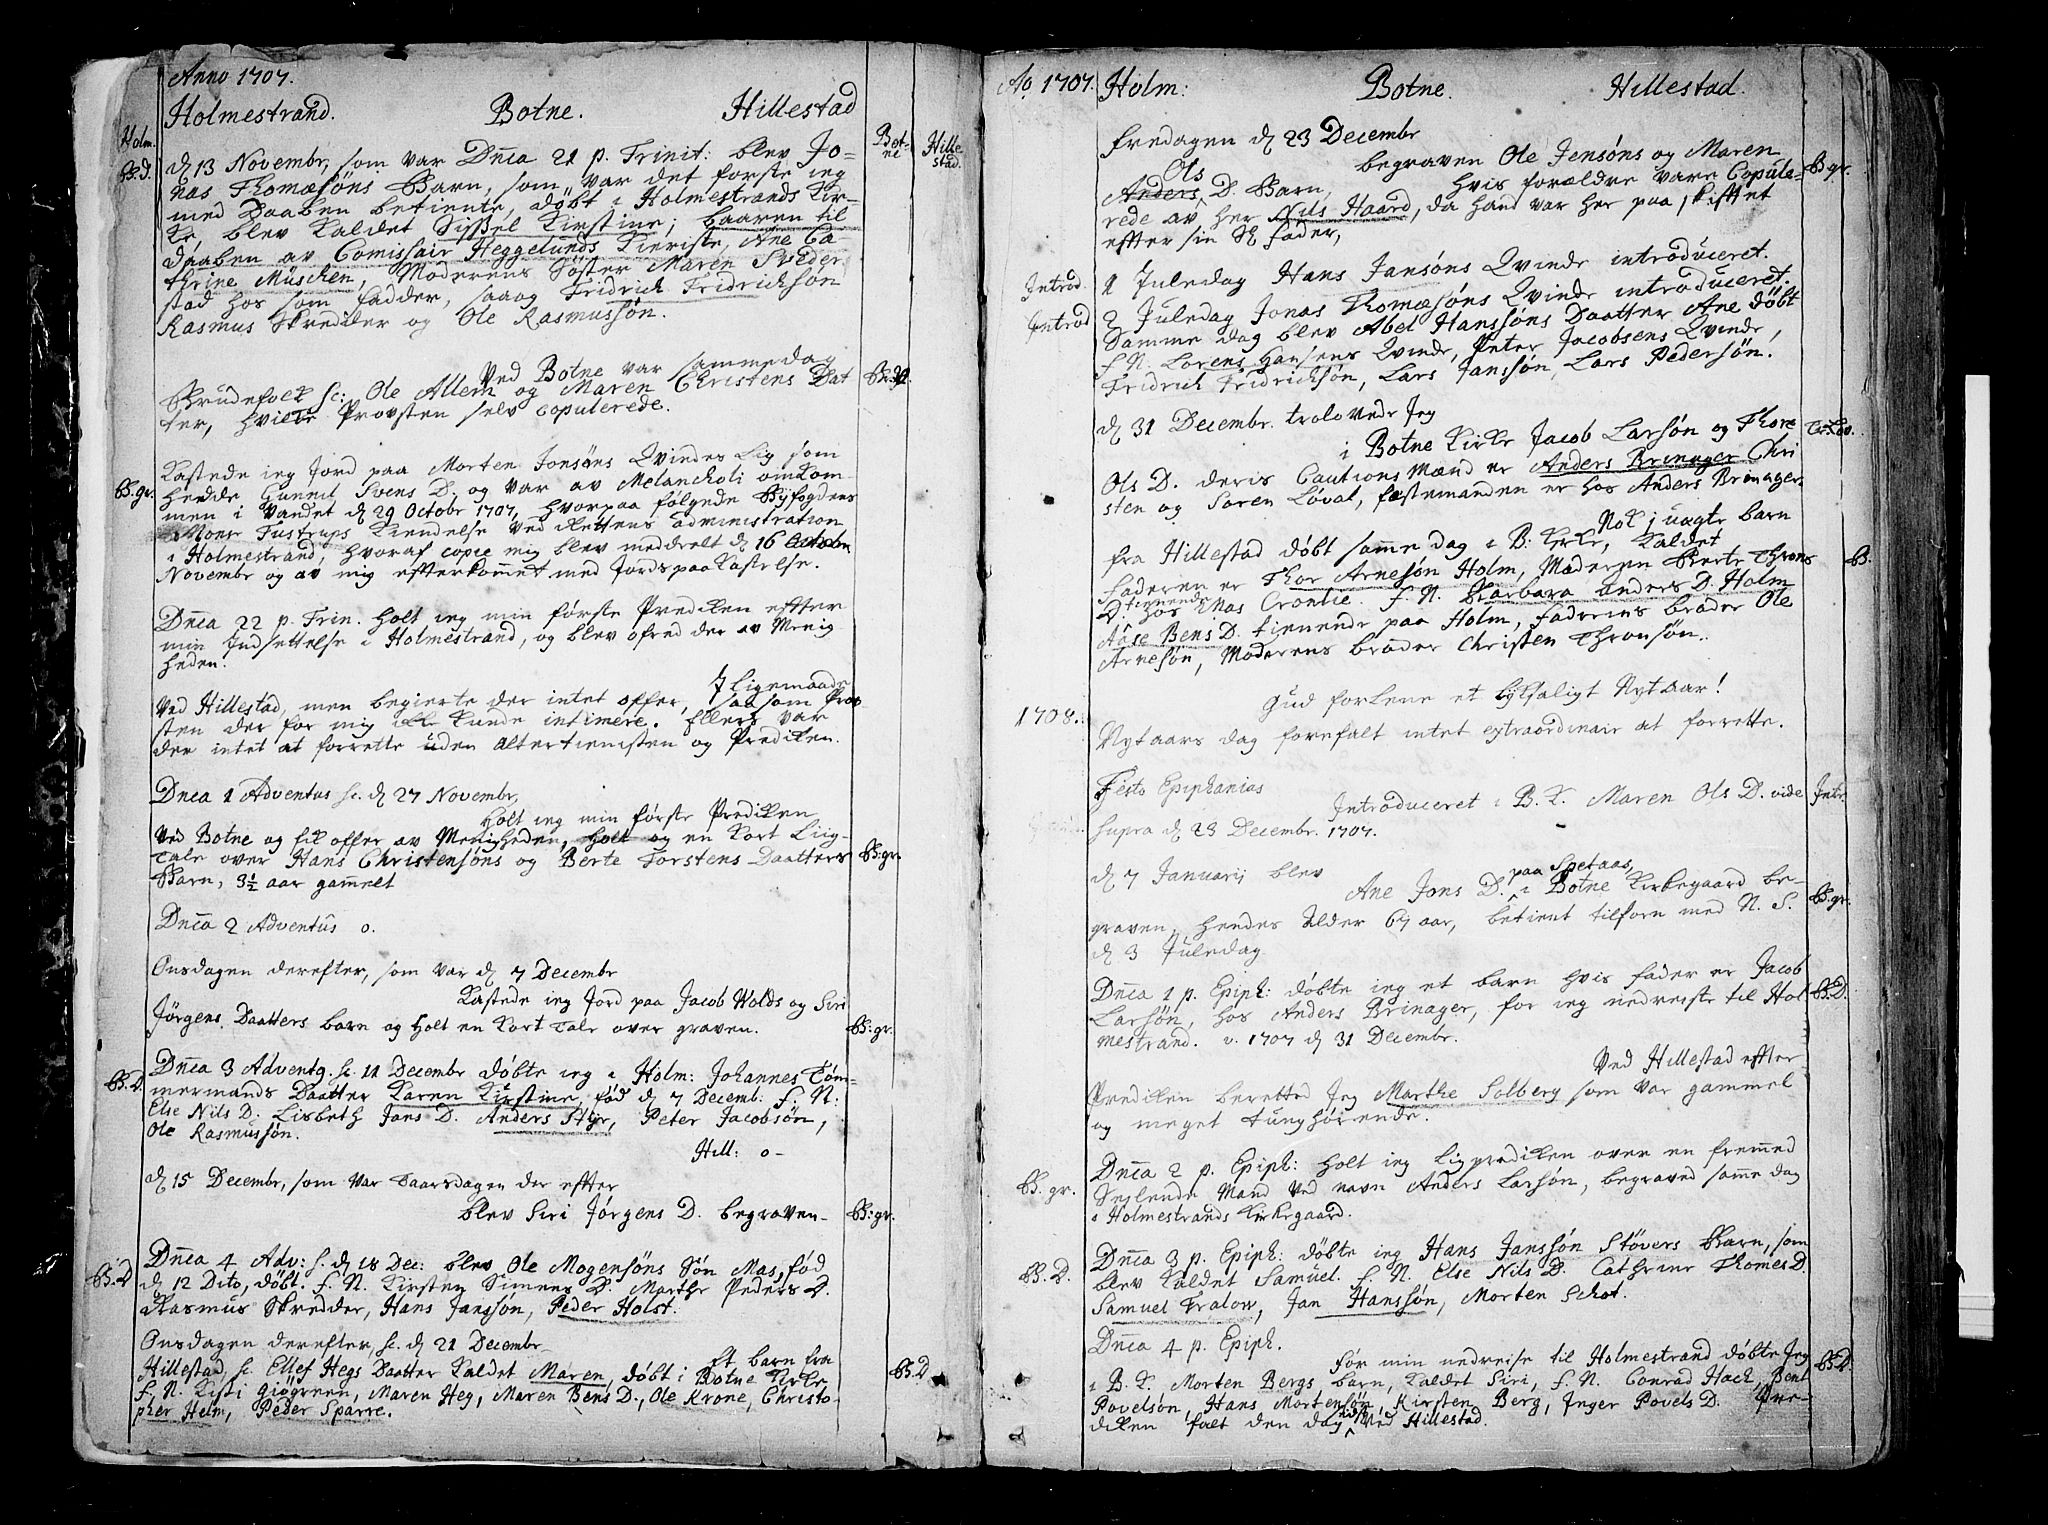 Anno 1707.
Holmestrand. Botne. Hillestad
Holm. Botne Hillestad.
B.D. d 13 Novembr, som var Dnca 21 p. Trinit: blev Jo-
nas Thomæsöns Barn, som var det første ieg
med Daaben betiente, döbt i Holmestrands Kir-
ke blev kaldet Sissel Kirstine; baaren til
daaben av Comissair Heggelunds Kieriste, Ane Ca-
thrine Müschen, Moderens Söster Maren Sveder
stad hos som fadder, saaog Fridrich Fridrichsön
Rasmus Skredder og Ole Rasmussön.
Ved Botne var samme dag
Brudefolk sc: Ole Allem og Maren Christens Dat
ter, hvilke Provsten selv copulerede.
B.gr. Kastede ieg Jord paa Morten Jonsöns Qvindes Lig som
hedde Gunnil Svens D. og var av Melancholi omkom
men i Vandet d 29 Octobr 1707, hvorpaa følgede Byfogdens
Monsr Tustrups Kiendelse ved Rettens administration
i Holmestrand, hvoraf copie mig blev meddeelt d 16
Novembr og av mig efterkommet med Jords paakastelse.
Dnca 22 p. Trin. holt ieg min første Prediken effter
min Indsettelse i Holmestrand, og blev ofred der av Menig
heden.
J ligemaade
Ved Hillestad, men begierte der intet offer, saasom Prov
sten der for mig ikke kunde intimere. Ellers var
der intet at forrette uden altertienisten og Prediken.
Dnca 1 Adventus sc. d 27 Novembr,
holt ieg min første Prediken
Ved Botne og fik offer av Menigheden, holt og en kort Liig-
Tale over Hans Christensöns og Berte Torstens Daatters B:gr.
Barn, 3½ aar gammelt
Dnca 2 Adventus o.
Onsdagen derefter, som var d 7 Decembr
Kastede ieg Jord paa Jacob Wolds og Siri
Jörgens Daatters barn og holt en kort Tale over graven. B:gr.
B.D Dnca 3 Adventg. sc. 11 Decembr döbte ieg i Holm: Johannes Töm-
mermands Daatter Karen Kirstine, föd d 7 Decemb: f. N:
Else Nils D. Lisbeth Jans D. Anders Styr, Peter Jacobsön,
Ole Rasmussön.
Hill: o-
d 15 Decembr, som var Taarsdagen der effter
blev Siri Jörgens D. begraven- B:gr.
B:D Dnca 4 Adv: s. d 18 Dec: blev Ole Mogensöns Sön Mas, föd
d 12 Dito, döbt. f. N. Kirsten Simens D. Marthe Peders D.
Rasmus Skredder, Hans Jansson, Peder Holst.
Onsdagen derefter sc. d 21 Decembr
Et barn fra
Hillestad sc. Ellef Hegs Daatter kaldet Maren, döbt i Botne Kirke B.D
f. N. Kisti Giögreen, Maren Heg, Maren Bens D., Ole Krone, Christo-
pher Helm, Peder Sparre.
Ao. 1707. Holm: Botne. Hillestad.
fredagen d 23 Decembr
begraven Ole Jensöns og Maren B gr.
Ols
Anders D. Barn, hvis foreldre vare Copule-
rede av Her Nils Haard, da hand var her paa skifftet
effter sin Sl fader,
Introd. 1 Juledag Hans Jansöns Qvinde introduceret.
Introd 2 Juledag Jonas Thomæsöns Qvinde introduceret.
Samme dag blev Abel Hanssöns Daatter Ane döbt
f. N. Lorens Hansens Qvinde, Peter Jacobsens Qvinde,
Fridrich Fridrichsön, Lars Jansson, Lars Pedersön.
d 31 Decembr. trolovede Jeg
i Botne Kirke Jacob Larsön og Thore
Ols D. deris Cautions Mænd er Anders Brinager Chri
sten og Soren Löval, fæstemanden er hos Anders Brinager.
Nok j uægte barn
fra Hillestad döbt samme dag i B: Kirke, kaldet
faderen er Thor Arnesön Holm, Moderen Berte Throns B.
D. tienende hos Mas Cronlie. f. N. Barbara Anders D. Holm
Aase Bens D. tienende paa Holm, faderens broder Ole
Arnesön, Moderens broder Christen Thronsön.
Gud forlene et lyksaligt Nyt Aar!
1708. Nytaars dag forefalt intet extraordinair at forrette.
Festo Epiphanias
Introduceret i B. K. Maren Ols D. vide Intr.
supra d 23 Decembr. 1707.
d 7 Januarij blev
paa Spetaas,
Ane Jons D. i Botne Kirkegaard be-
graven, hendes Alder 67 aar, betient tilforn med N. S. B.gr.
d 3 Juledag
Dnca 1 p. Epiph: döbte ieg et barn hvis fader er Jacob B.D.
Larsön, hos Anders Brinager, før ieg nedreiste til Hol
mestrand. v. 1707 d 31 Decembr.
Ved Hillestad effter
Prediken beretted Jeg Marthe Solberg som var gammel
og meget tunghörende.
B. gr. Dnca 2 p. Epiph: holt ieg Ligprediken over en fremmed
Sejlende Mand ved navn Anders Larsön, begraved samme dag
i Holmestrands Kirkegaard.
B. D. Dnca 3 p. Epiph: döbte ieg Hans Janssön Stövers Barn, som
blev kaldet Samuel. f. N. Else Nils D. Cathrine Thomes D.
Samuel Tralow, Jan Hanssön, Morten Schot.
Dnca 4 p. Epiph.
för min nedreise til Holmestrand döbte Jeg B.D.
i B. K. Morten Bergs barn, kaldet Siri, f. N. Conrad Hack, Bent
Povelsön, Hans Mortensön, Kirsten Berg, Inger Povels D. Pre-
diken falt den dag Ved Hillestad.